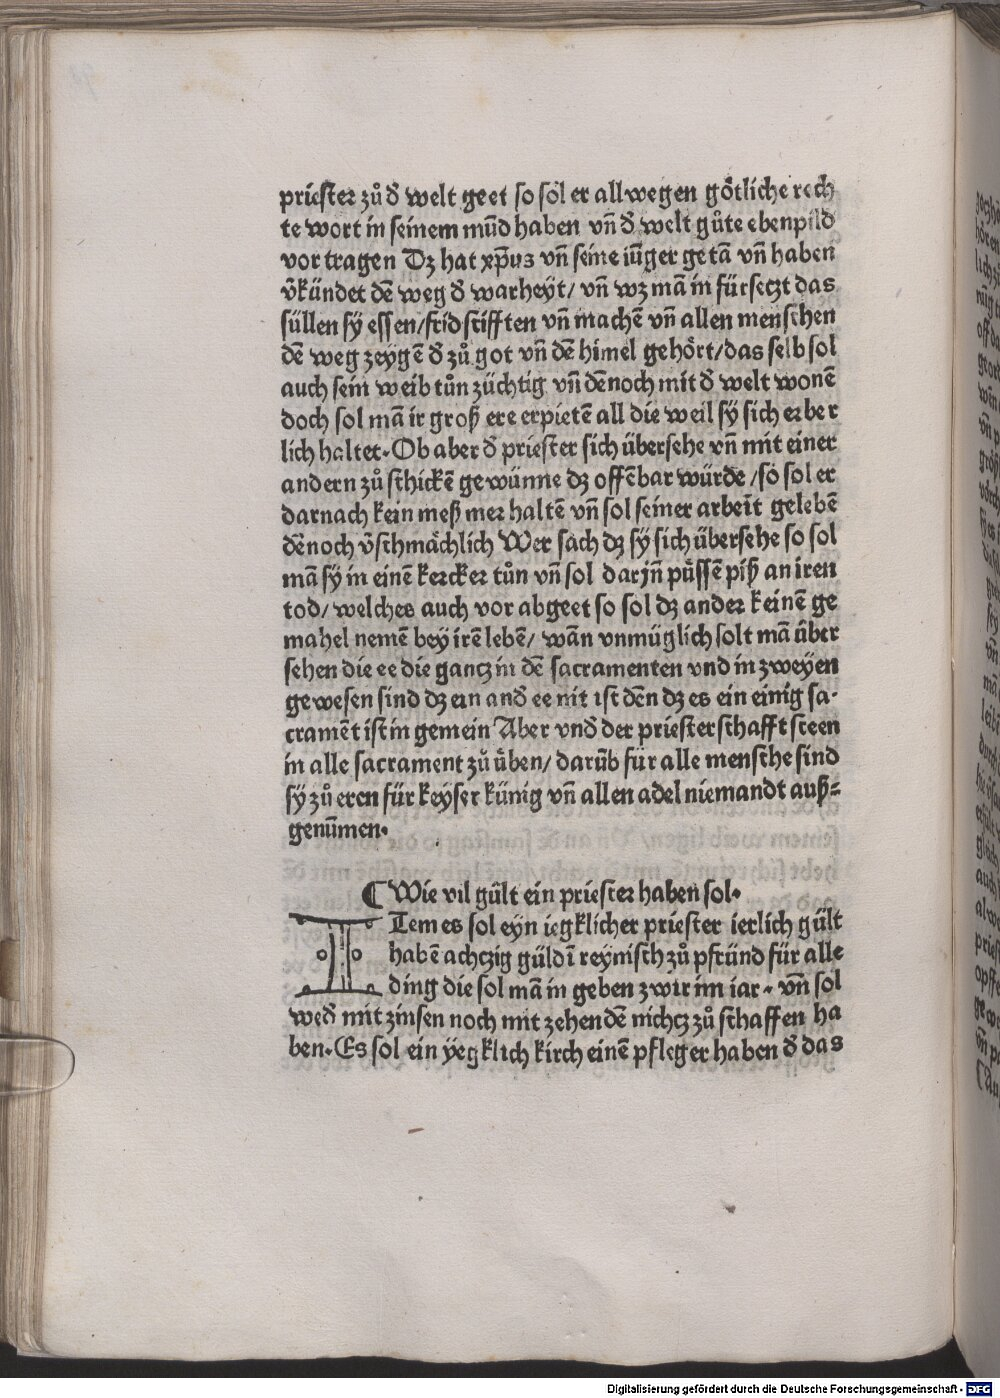 priester zů đ welt geet so sol er allwegen gö́tliche rech
te wort in seinem mūd haben vn̄ đ welt gůte ebenpild
vor tragen Dz hat xp̄us vn̄ seine iūger getā vn̄ haben
v̄kündet dē weg đ warheyt/ vn̄ wz mā in fürseczt das
süllen sÿ essen/frid stifften vn̄ machē vn̄ allen menschen
dē weg zeygē đ zů got vn̄ dē himel gehört/das selb sol
auch sein weib tůn züchtig vn̄ dēnoch mit đ welt wonē
doch sol mā ir groß ere erpietē all die weil sÿ sich erber
lich haltet. Ob aber đ priester sich übersehe vn̄ mit einer
andern zů schickē gewünne dz offēbar würde/so sol er
darnach kein meß mer haltē vn̄ sol seiner arbeit gelebē
dēnoch v̄schmächlich Wer sach dz sÿ sich übersehe so sol
mā sÿ in einē kercker tůn vn̄ sol darjn̄ püssē piß an iren
tod/ welches auch vor abgeet so sol dz ander keinē ge
mahel nemē beÿ irē lebē/ wān vnmüglich solt mā über
sehen die ee die gancz in dē sacramenten vnd in zweyen
gewesen sind dz ein anđ ee nit ist dēn dz es ein einig sa-
cramēt ist in gemein Aber vnđ der priesterschafft steen
in alle sacrament zů üben/ darūb für alle mensche sind
sÿ zů eren für keyser künig vn̄ allen adel niemandt auß=
genūmen.
¶ Wie vil gült ein priester haben sol.
ITem es sol eyn iegklicher priester ierlich gült
habē achczig güldī reÿnisch zů pfründ für alle
ding die sol mā in geben zwir im iar. vn̄ sol
weđ mit zinsen noch mit zehendē nichcz zů schaffen ha
ben. Es sol ein ÿegklich kirch einē pfleger haben đ das
Digitalisierung gefördert durch die Deutsche Forschungsgemeinschaft - DFG